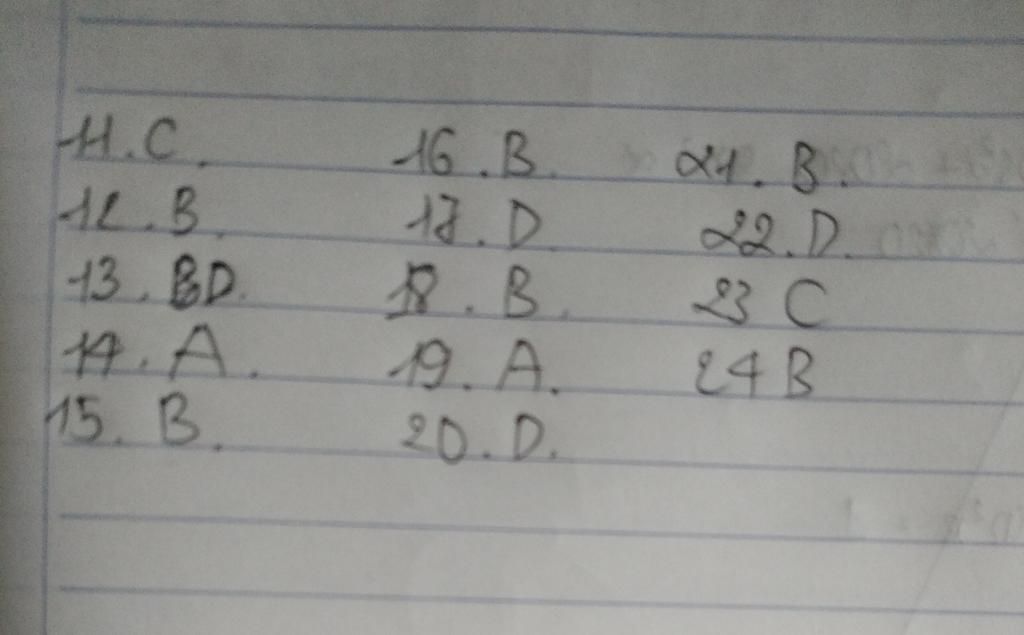 11. C.
12. B.
13. BD.
14. A.
15. B.
16. B.
17. D.
18. B.
19. A.
20. D.
21. B.
22. D.
23 C
24 B